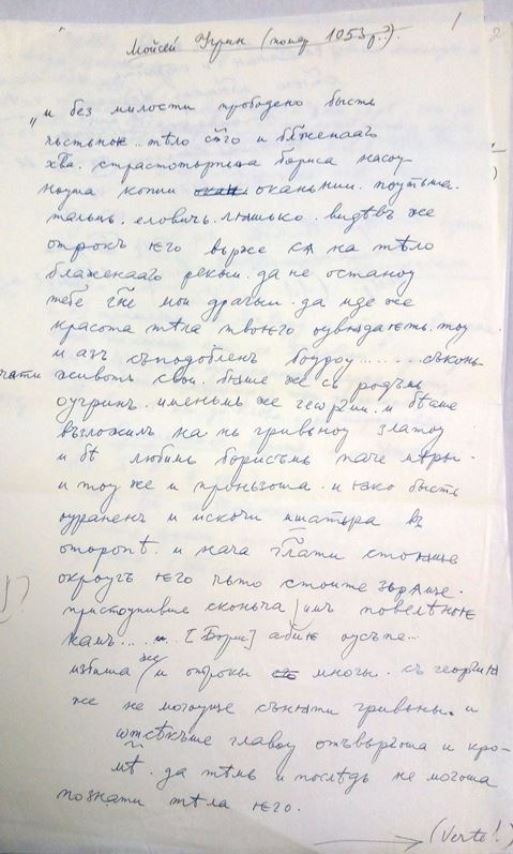 1
Мойсей Угрин (помер 1053 р.?).
„и без милости прободено бысть
чьстьноѥ.. тѣло ст҃го и бл҃женааго
хв҃а. страстотьрпьца бориса насоу
ноуша копии оканьнии. поутьша.
тальць. еловичь. ляшько. видѣвъ же
отрокъ ѥго вьрже сѧ на тѣло
блаженааго рекыи. да не останоу
тебе г҃не мои драгыи. да иде же
красота тѣла твоѥго оувѧдаѥть. тоу
и азъ съподобленъ боудоу....... съконь
чати животъ свои. бѧше же сь родъмь
оугринъ. именьмь же георгии. и бѣаше
възложилъ на нь гривьноу златоу
и бѣ любимъ борисъмь паче мѣры.
и тоу же и проньзоша. и ꙗко бысть
ураненъ и искочи ишатьра въ
оторопѣ. и нача гл҃ати стоꙗще
округъ ѥго чьто стоите зьрѧще.
пристоупивше сконьча имъ повелѣноѥ
намъ..... [Борис] абиѥ оусъпе...
избиша же и отрокы многы. съ георгиꙗ
же не могоуще сънѧти гривьны. и
отсѣкъше главоу отъвьргоша и кро-
мѣ. да тѣмь и послѣдь не могоша
познати тѣла ѥго.
(Verte!)